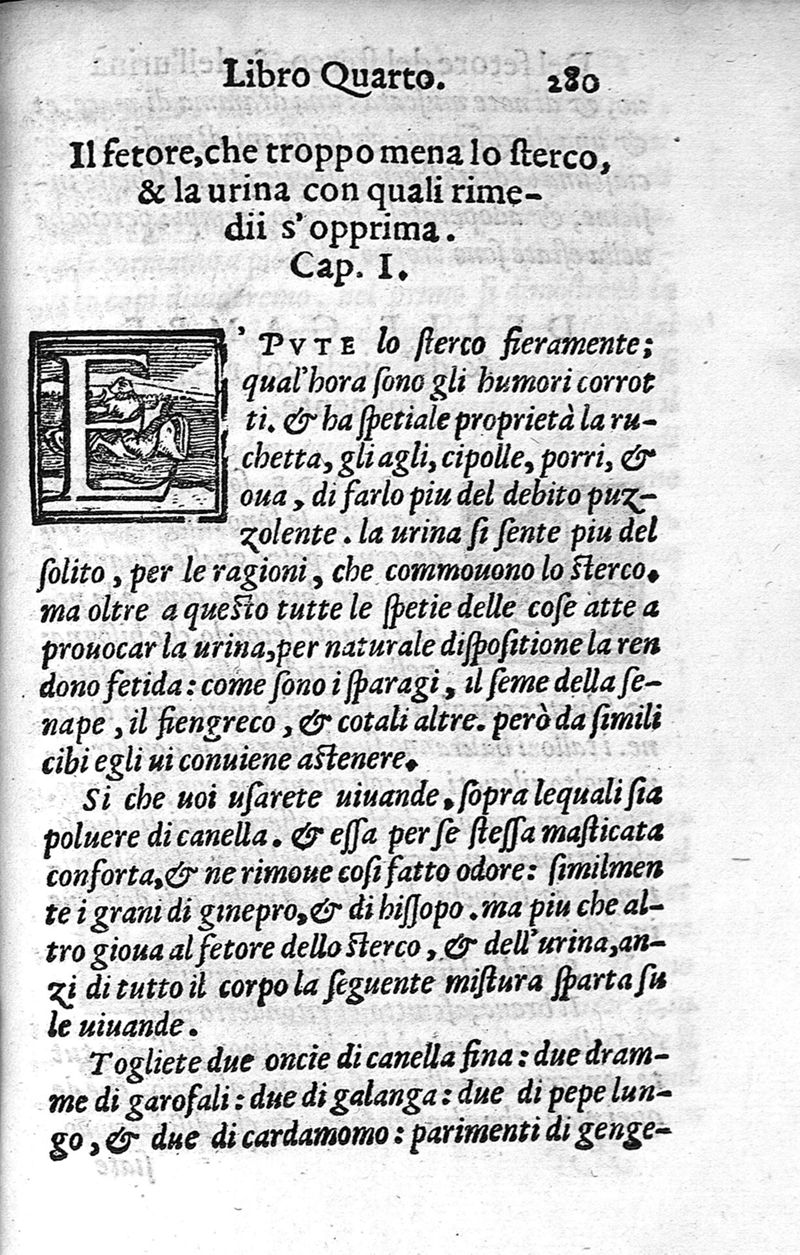 Libro Quarto. 280
Il fetore, che troppo mena lo sterco,
& la urina con quali rime-
dii s'opprima.
Cap. I.
E' PVTE lo sterco fieramente;
qual'hora sono gli humori corrot
ti. & ha spetiale proprietà la ru-
chetta, gli agli, cipolle, porri, &
oua, di farlo piu del debito puz-
zolente. la urina si sente piu del
solito, per le ragioni, che commouono lo sterco.
ma oltre a questo tutte le spetie delle cose atte a
prouocar la urina, per naturale dispositione la ren
dono fetida: come sono i sparagi, il seme della se-
nape, il fiengreco, & cotali altre. però da simili
cibi egli ui conuiene astenere.
Si che uoi usarete uiuande, sopra lequali sia
poluere di canella. & essa per se stessa masticata
conforta, & ne rimoue cosi fatto odore: similmen
te i grani di ginepro, & di hissopo. ma piu che al-
tro gioua al fetore dello sterco, & dell'urina, an-
zi di tutto il corpo la seguente mistura sparta su
le uiuande.
Togliete due oncie di canella fina: due dram-
me di garofali: due di galanga: due di pepe lun-
go, & due di cardamomo: parimenti di genge-